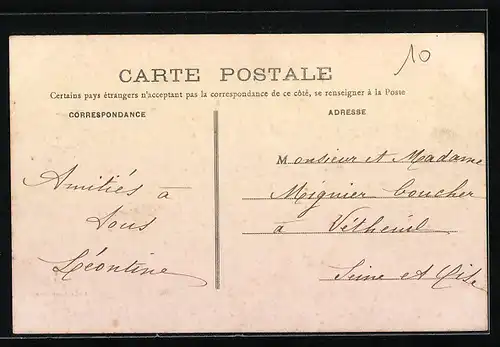 10
CARTE POSTALE
Certains pays étrangers n'acceptant pas la correspondance de ce côté, se renseigner à la Poste
CORRESPONDANCE
Amitiés à
tous
Léontine
ADRESSE
Monsieur et Madame
Mignier Coucher
à Vétheuil
Seine et Oise